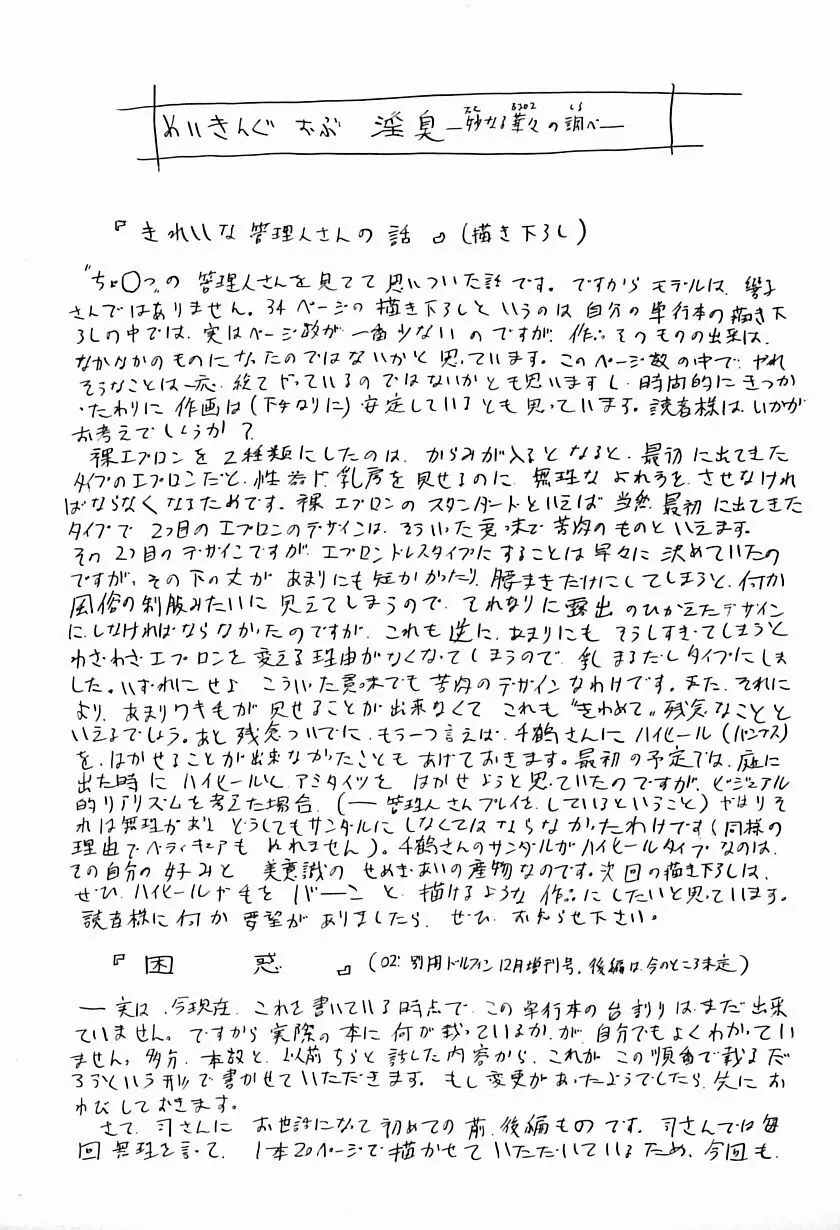 めいきんぐ おぶ 淫臭 ―妙なる華々の調べ―
『きれいな管理人さんの話』(描き下ろし)
"ちょ○っ"の 管理人さんを見てて思いついた話です。ですからモデルは、響子
さんではありません。34ページの描き下ろしというのは自分の単行本の描き下
ろしの中では、実はページ数が一番少ないのですが、作品そのものの出来は、
なかなかのものになったのではないかと思っています。このページ数の中で、やれ
そうなことは一応、総てやっているのではないかとも思いますし、時間的にきつか
ったわりに作画は(下手なりに)安定しているとも思っています。読者様はいかが
お考えでしょうか?
裸エプロンを2種類にしたのは、からみが入るとなると、最初に出てきた
タイプのエプロンだと、性器や乳房を見せるのに、無理なよれ方をさせなけれ
ばならなくなるためです。裸エプロンのスタンダードといえば当然、最初に出てきた
タイプで2つ目のエプロンのデザインは、そういった意味で苦肉のものといえます。
その2つ目のデザインですが、エプロンドレスタイプにすることは早々に決めていたの
ですが、その下の丈があまりにも短かかったり、腰まきだけにしてしまうと、何か
風俗の制服みたいに見えてしまうので、それなりに露出のひかえたデザイン
にしなければならなかったのですが、これも逆に、あまりにもそうしすぎてしまうと
わざわざエプロンを変える理由がなくなってしまうので、乳まるだしタイプにしま
した。いずれにせよ こういった意味でも苦肉のデザインなわけです。また、それに
より、あまりワキ毛が見せることが出来なくて これも"きわめて"残念なことと
いえるでしょう。あと残念ついでに、もう一つ言えば、千鶴さんにハイヒール(パンプス)
を、はかせることが出来なかったこともあげておきます。最初の予定では、庭に
出た時にハイヒールと、アミタイツをはかせようと思っていたのですが、ビジュアル
的リアリズムを考えた場合、(―管理人さんプレイを、しているということ)やはりそ
れは無理があり、どうしてもサンダルにしなくてはならなかったわけです(同様の
理由でペディキュアもぬれません)。千鶴さんのサンダルがハイヒールタイプなのは、
その自分の好みと 美意識のせめぎあいの産物なのです。次回の描き下ろしは、
ぜひ、ハイヒールや毛をバーンと、描けるような作品にしたいと思っています。
読者様に何か要望がありましたら、ぜひ、お知らせ下さい。
『困惑』(02'別冊ドルフィン12月増刊号、後編は今のところ未定)
―実は、今現在、これを書いている時点で、この単行本の台割りは、まだ出来
ていません。ですから実際の本に何が載っているか、が、自分でもよくわかってい
ません。多分、本数と、以前ちらと話した内容から、これがこの順番で載るだ
ろうという形で書かせていただきます。もし変更があったようでしたら、先にお
わびしておきます。
さて、司さんに お世話になって初めての前、後編ものです。司さんでは毎
回無理を言って、1本20ページで描かせていただいているため、今回も、